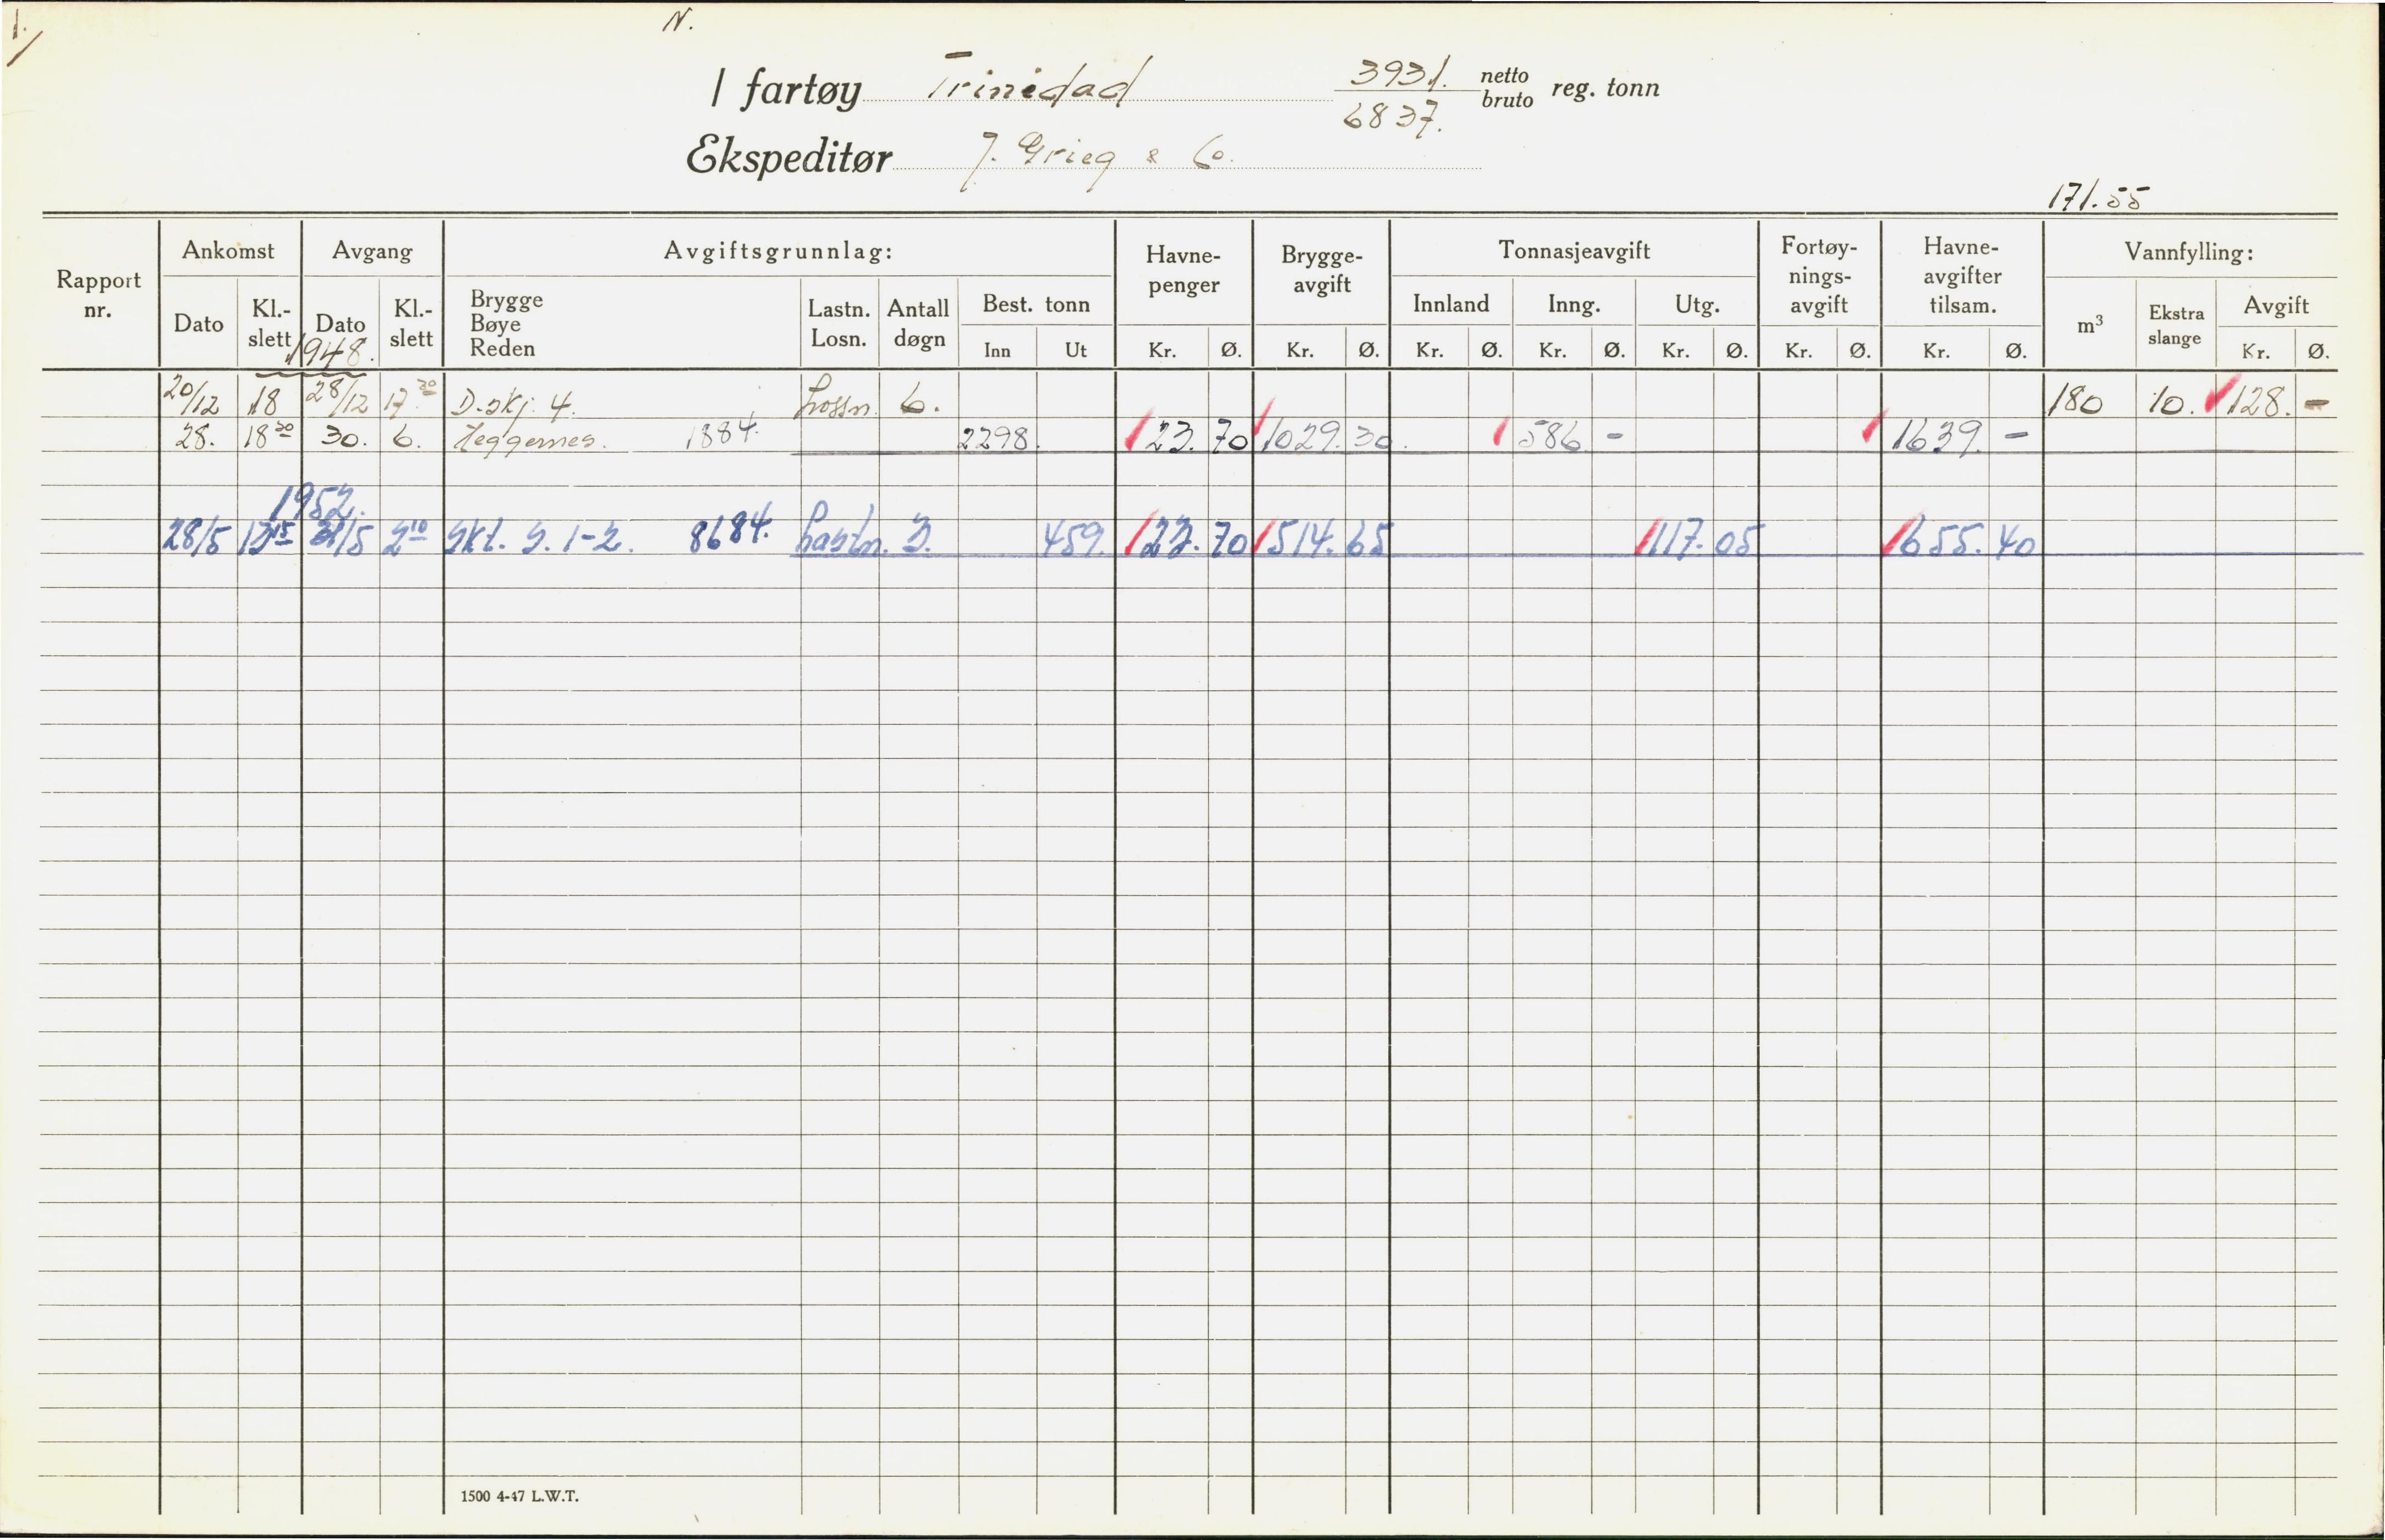 1.
N.
I fartøy Trinidad 3931. netto reg. tonn
6837. bruto
Ekspeditør J. Grieg & Co.
171.55
Rapport nr. Ankomst Avgang Avgiftsgrunnlag: Havne-penger Brygge-avgift Tonnasjeavgift Fortøy-nings-avgift Havne-avgifter tilsam. Vannfylling:
Dato Kl.-slett Dato Kl.-slett Brygge Bøye Reden Lastn. Losn. Antall døgn Best. tonn Innland Inng. Utg. m³ Ekstra slange Avgift
Inn Ut Kr. Ø. Kr. Ø. Kr. Ø. Kr. Ø. Kr. Ø. Kr. Ø. Kr. Ø. Kr. Ø.
1948.
20/12 18 28/12 17 30 D.skj. 4. Lossn. 6. 180 10. 128. -
28. 18 30 30. 6. Heggernes. 1884. 2298. 23. 70 1029. 30. 586 - 1639. -
1952.
28/5 13 15 31/5 2 10 Skt. S. 1-2. 8684. Lastn. 3. 459. 23. 70 514. 65 117. 05 655. 40
1500 4-47 L.W.T.